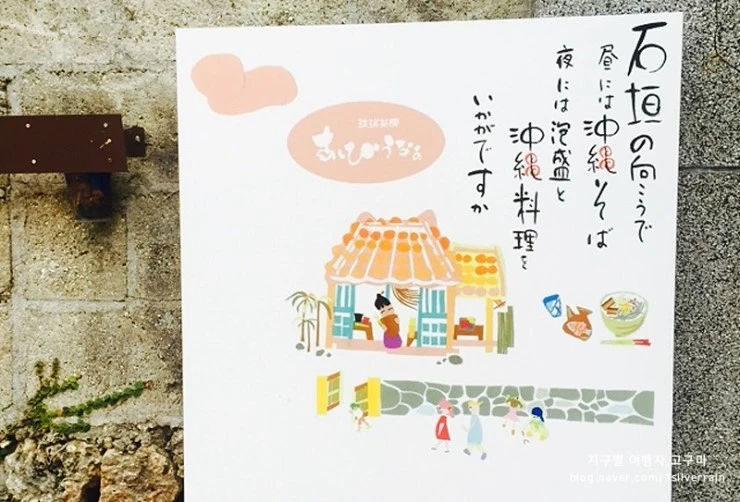 石垣の向こうで
昼には沖縄そば
夜には泡盛と
沖縄料理を
いかがですか
琉球茶房
あしびうなぁ
지구별 여행자,고구마
blog.naver.com/1silverrain